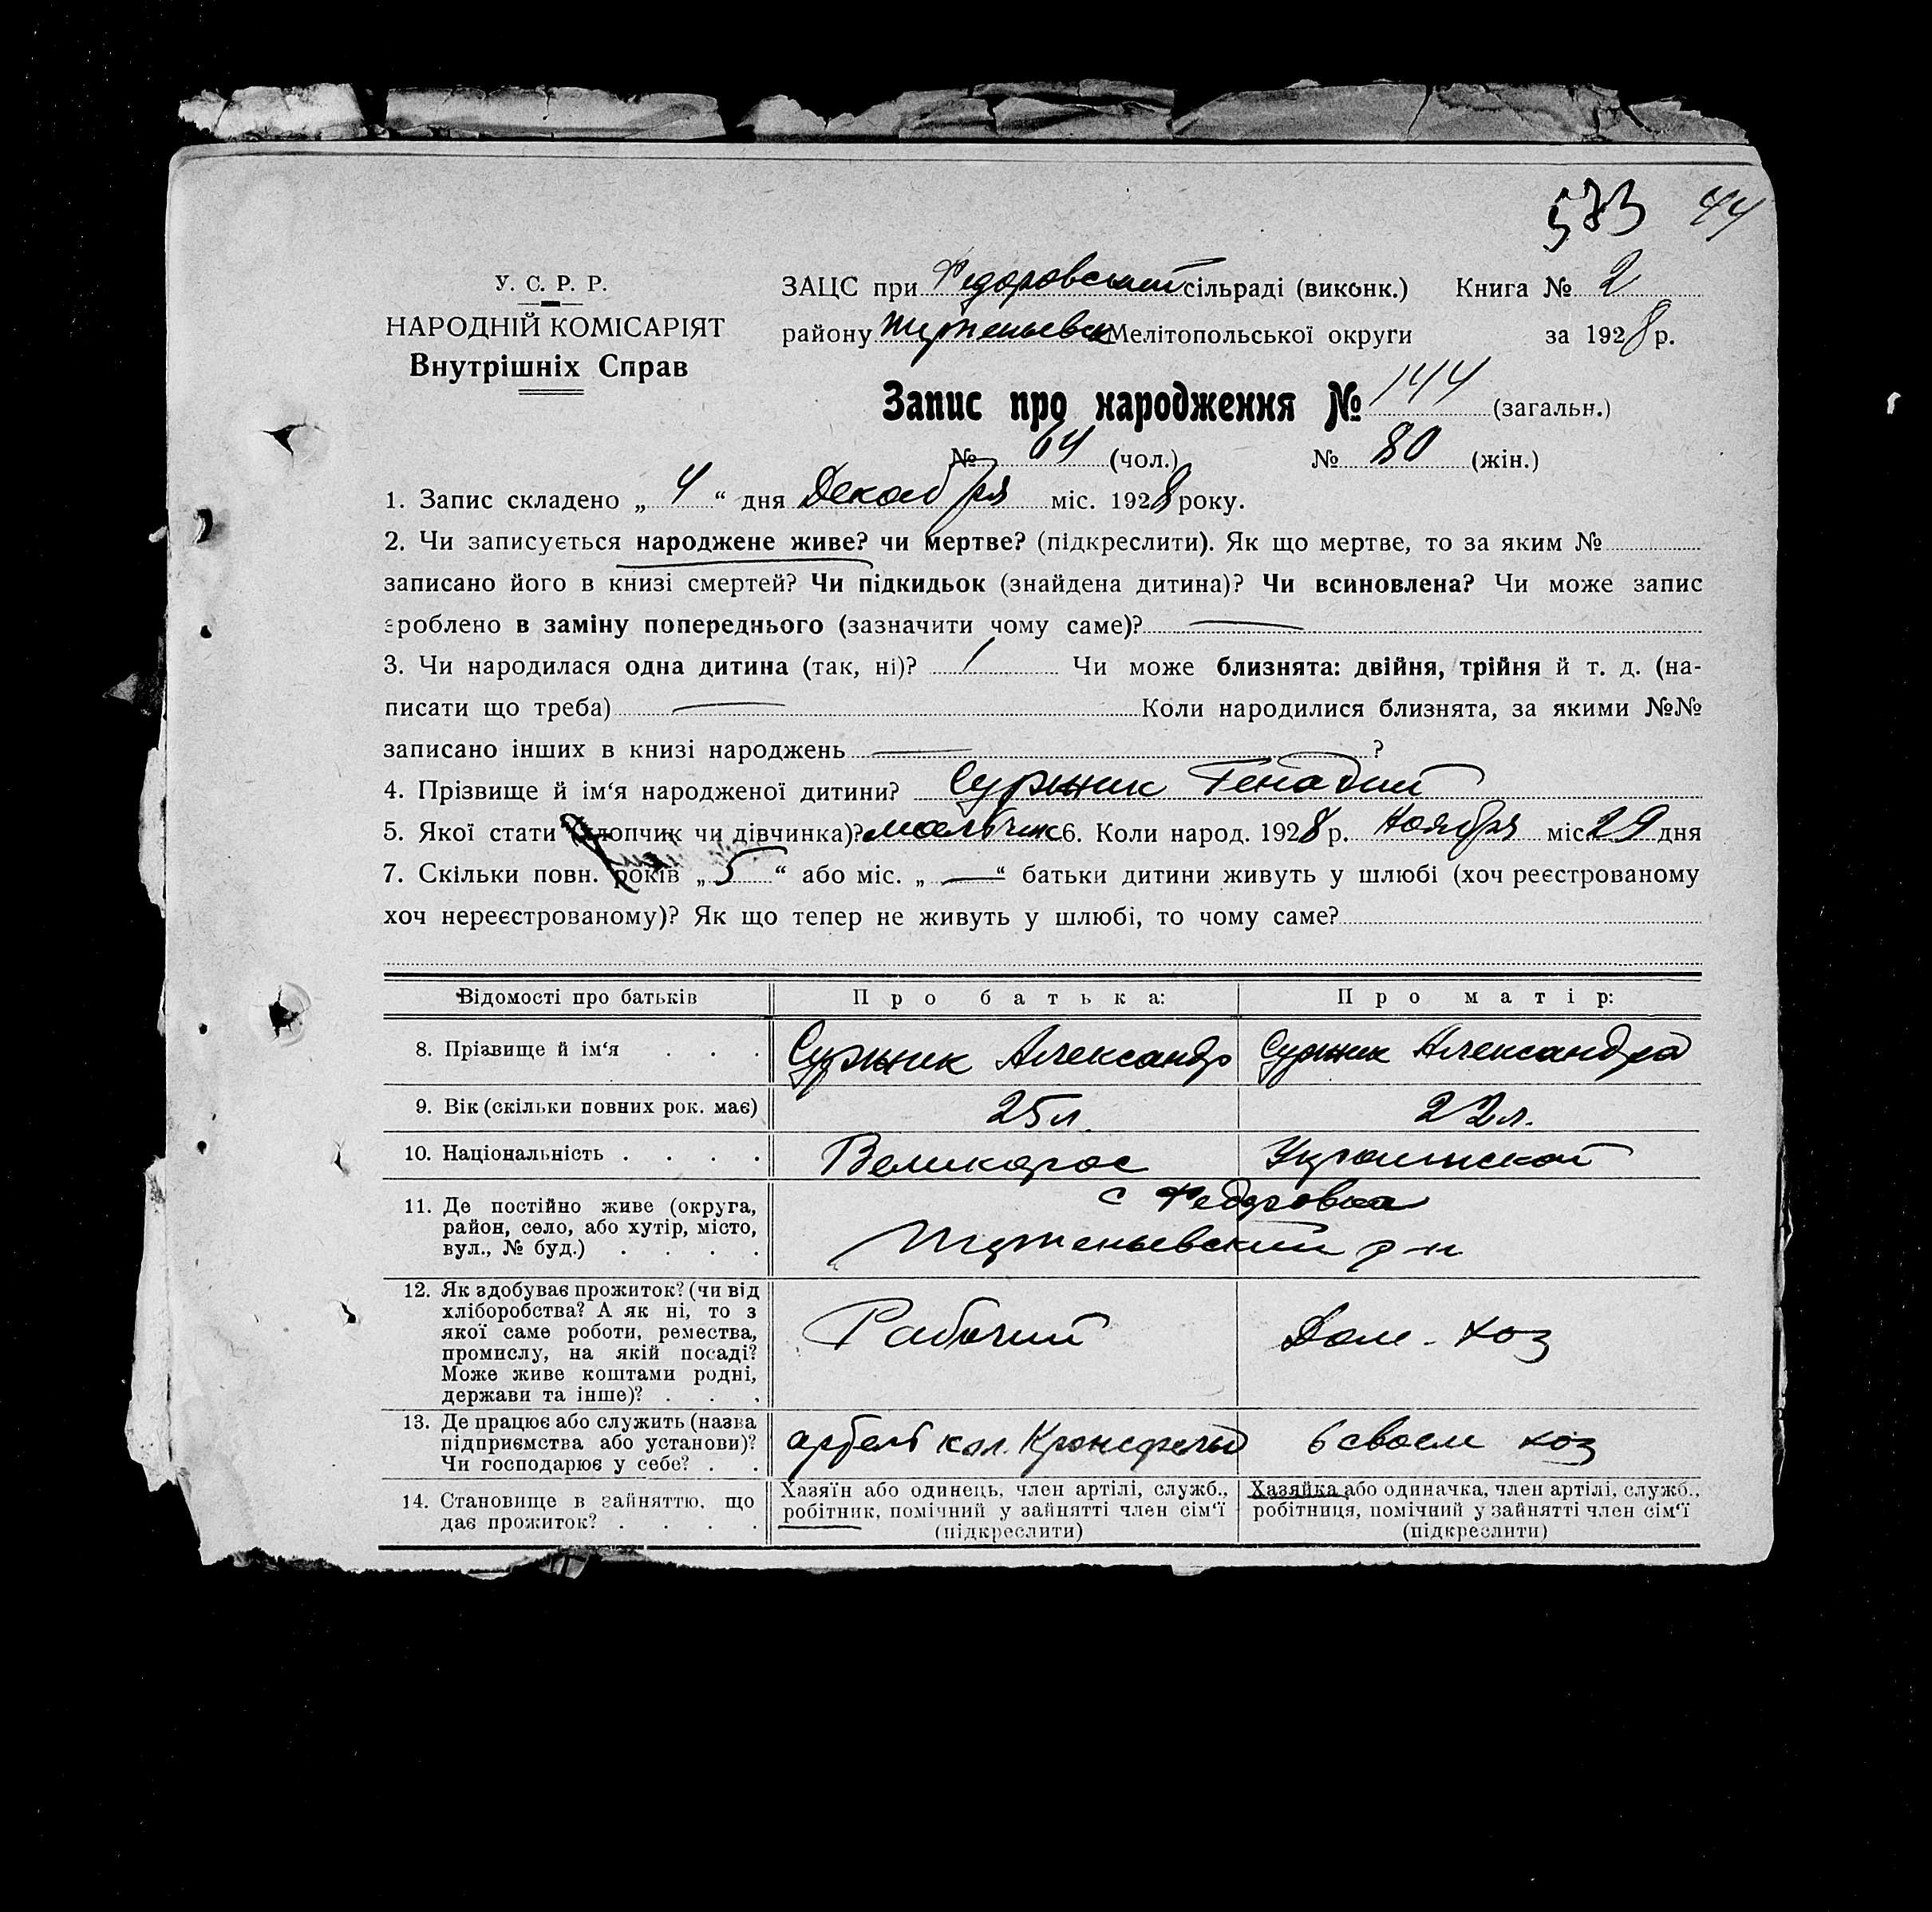 583 44
У. С. Р. Р.
НАРОДНІЙ КОМІСАРІЯТ
Внутрішніх Справ
ЗАЦС при Федоровский сільраді (виконк.) Книга № 2
району Мелітопольської округи за 1928 р.
Запис про народження № 144 (загальн.)
№ 64 (чол.) № 80 (жін.)
1. Запис складено „ 4 “ дня Декабря міс. 1928 року.
2. Чи записується народжене живе? чи мертве? (підкреслити). Як що мертве, то за яким №
записано його в книзі смертей? Чи підкидьок (знайдена дитина)? Чи всиновлена? Чи може запис
зроблено в заміну попереднього (зазначити чому саме)? —
3. Чи народилася одна дитина (так, ні)? 1 Чи може близнята: двійня, трійня й т. д. (на-
писати що треба) — Коли народилися близнята, за якими №№
записано інших в книзі народжень — ?
4. Прізвище й ім'я народженої дитини? Суржик Генадий
5. Якої стати (хлопчик чи дівчинка)? мальчик 6. Коли народ. 1928 р. Ноября міс. 29 дня
7. Скільки повн. років „ 5 “ або міс. „ — “ батьки дитини живуть у шлюбі (хоч реєстрованому
хоч нереєстрованому)? Як що тепер не живуть у шлюбі, то чому саме?
Відомості про батьків Про батька: Про матір:
8. Прізвище й ім‘я . . . Суржик Александр Суржик Александра
9. Вік (скільки повних рок. має) 25 л. 22 л.
10. Національність . . . . Великорос Украинской
11. Де постійно живе (округа,
район, село, або хутір, місто,
вул., № буд.) . . . .
с Федоровка
р-н
12. Як здобуває прожиток? (чи від
хліборобства? А як ні, то з
якої саме роботи, ремества,
промислу, на якій посаді?
Може живе коштами родні,
держави та інше)? . . .
Рабочий Дом-хоз
13. Де працює або служить (назва
підприємства або установи)?
Чи господарює у себе? . .
кол. Кронсфельд в своем хоз
14. Становище в зайняттю, що
дає прожиток? . . . .
Хазяїн або одинець, член артілі, служб.,
робітник, помічний у зайнятті член сім‘ї
(підкреслити)
Хазяйка або одиначка, член артілі, служб.,
робітниця, помічний у зайнятті член сім‘ї
(підкреслити)